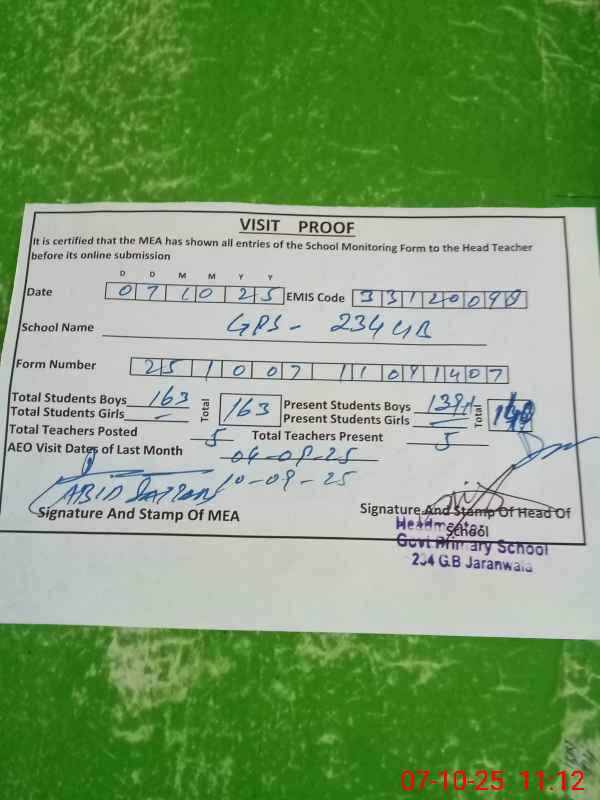 VISIT PROOF
It is certified that the MEA has shown all entries of the School Monitoring Form to the Head Teacher
before its online submission
D D M M Y Y
Date 0 7 1 0 2 5 EMIS Code 3 3 1 2 0 0 9 8
School Name GPS - 234 GB
Form Number 25 1 0 0 7 1 1 0 9 1 4 0 7
Total Students Boys 163 Total 163 Present Students Boys 139 Total
Total Students Girls — Present Students Girls —
Total Teachers Posted 5 Total Teachers Present 5
AEO Visit Dates of Last Month 04-09-25
10-09-25
ABID
Signature And Stamp Of MEA
Signature And Stamp Of Head Of
School
Headmaster
Govt Primary School
234 G.B Jaranwala
07-10-25 11.12